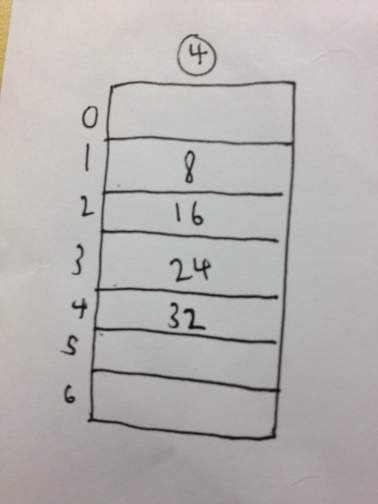 4
0
1 8
2 16
3 24
4 32
5
6